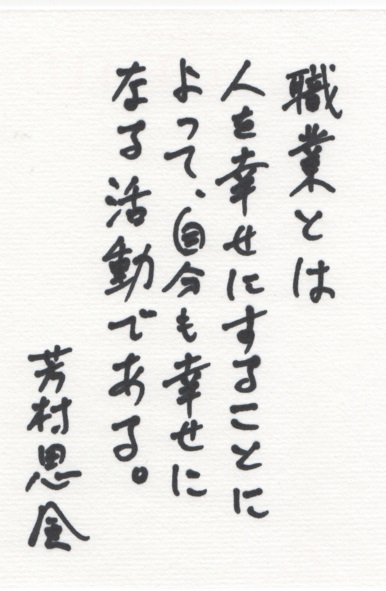 職業とは
人を幸せにすることに
よって、自分も幸せに
なる活動である。
芳村思風